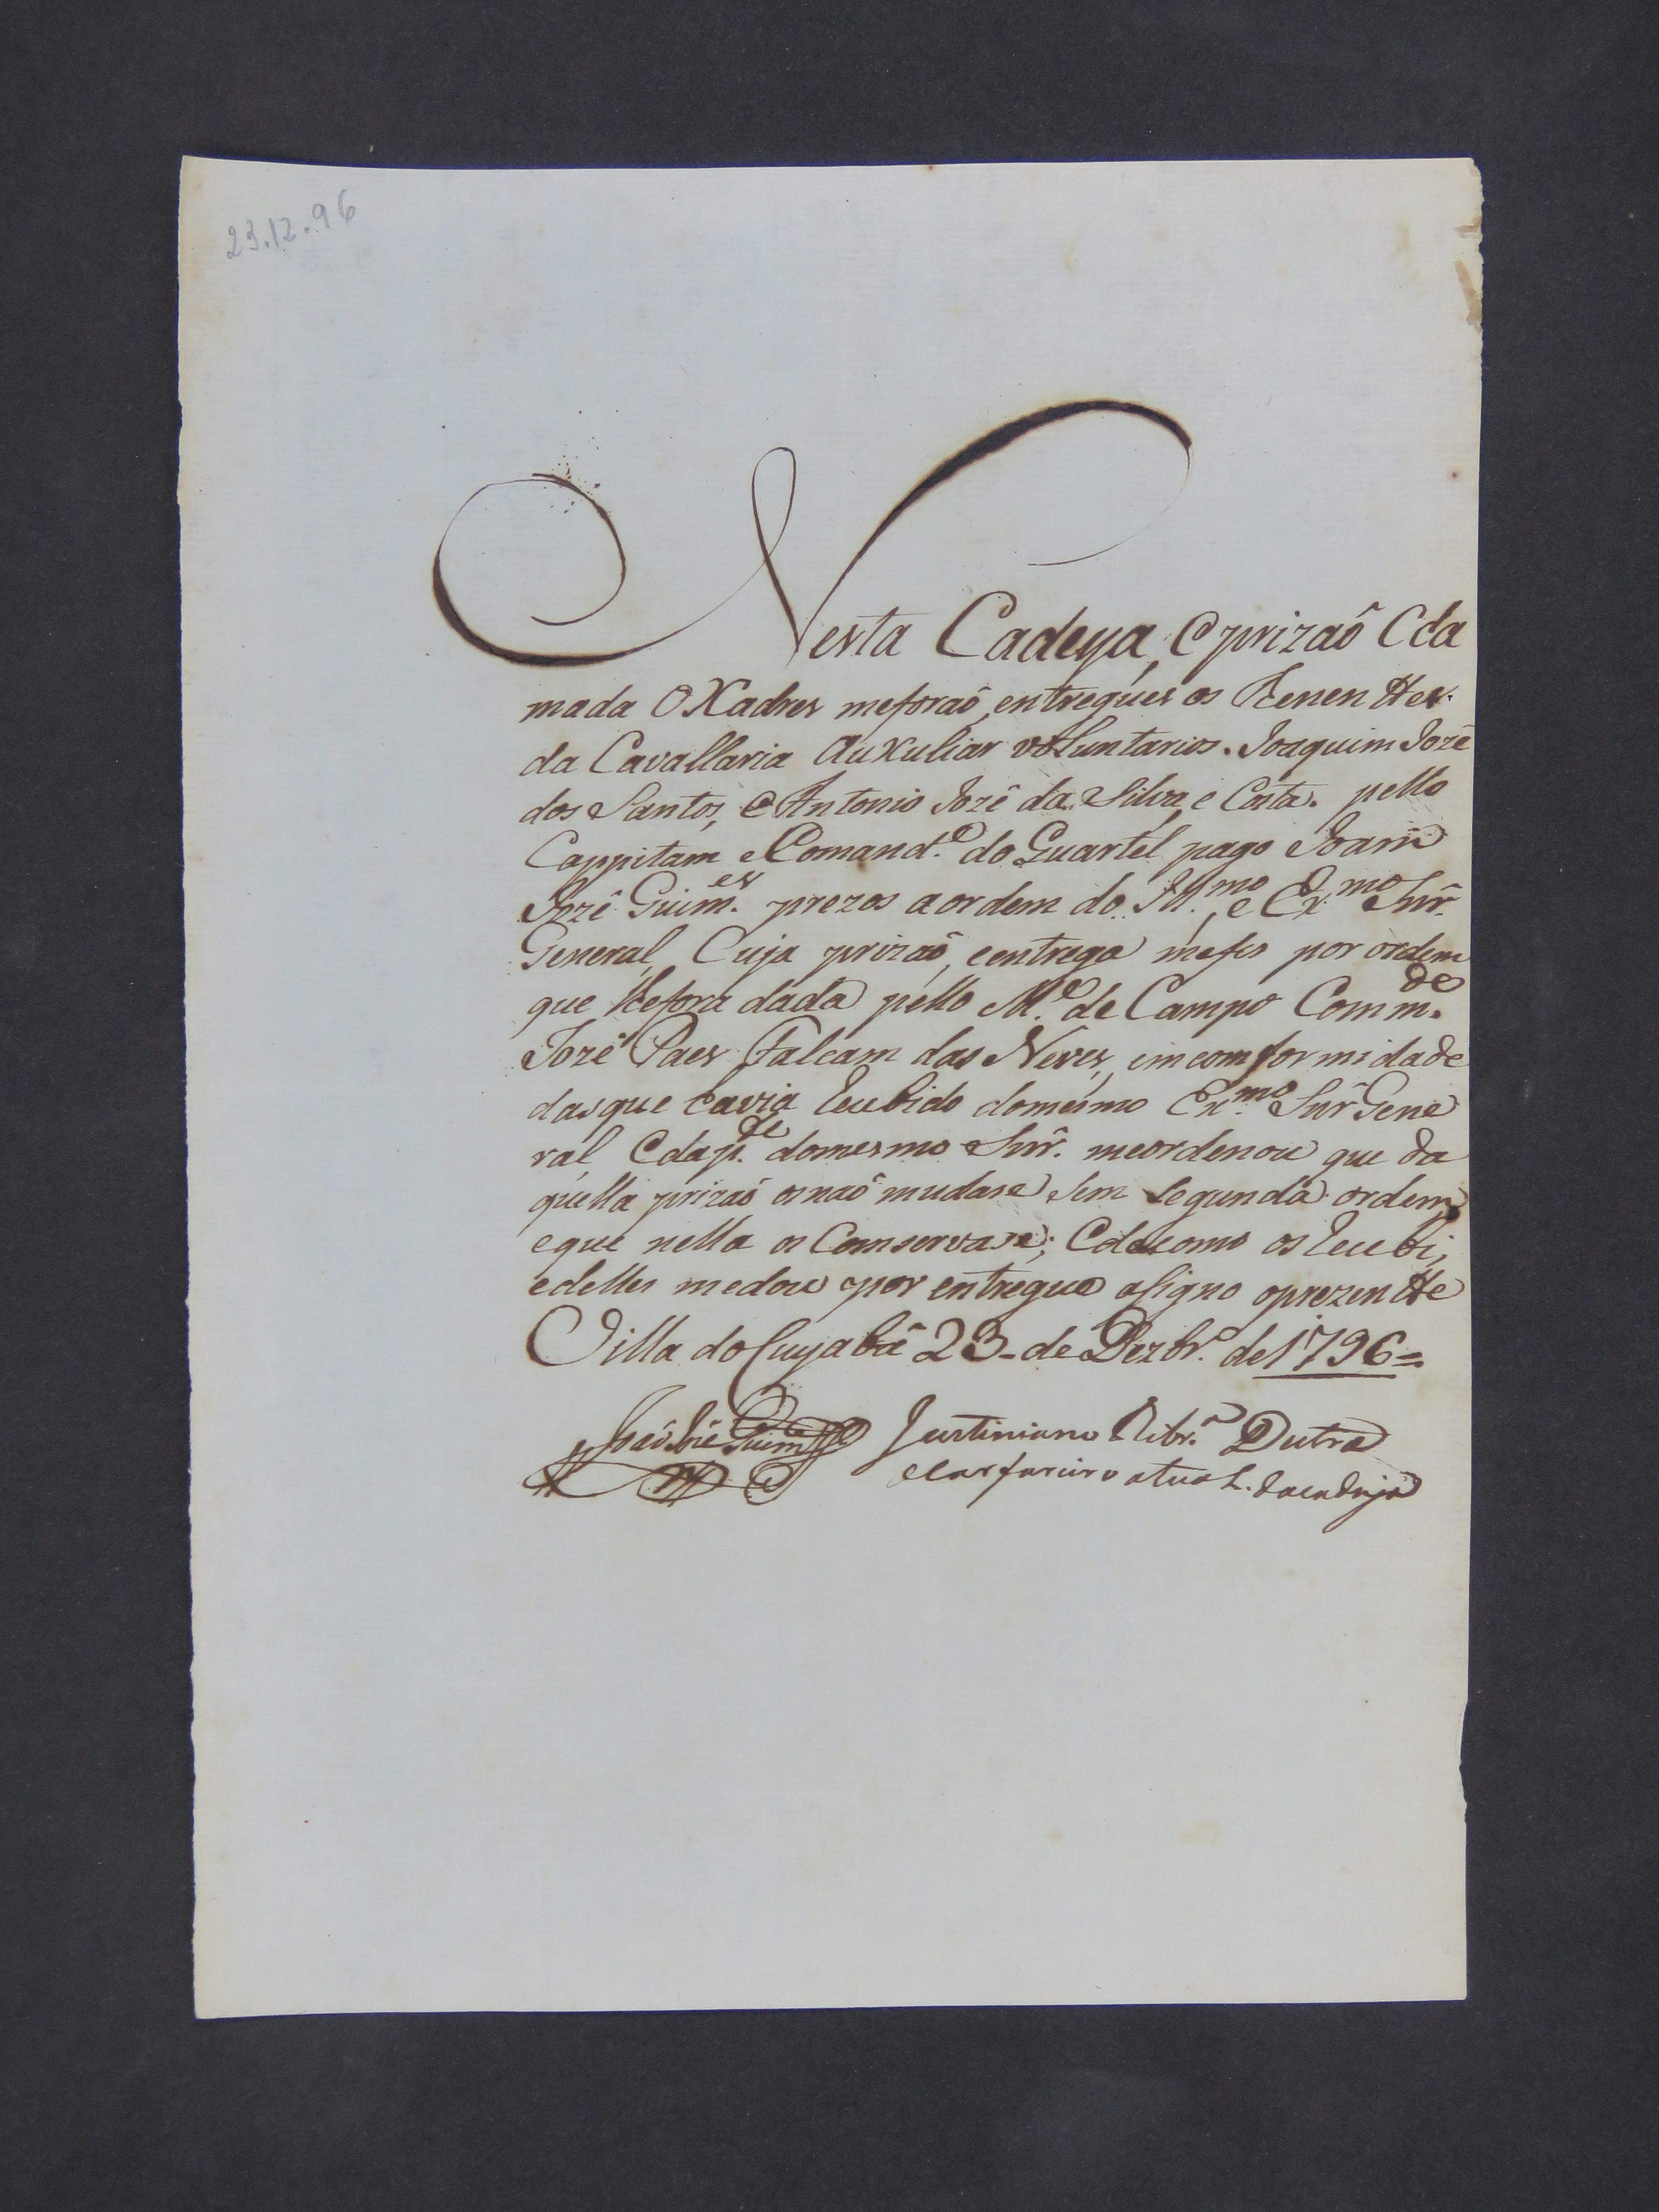 23.12.96
Nesta Cadeya, e prizaô Cha
mada O Xadres meforaô entregues os Tenentes.
da Cavallaria Auxuliar voluntarios. Joaquim Jozê
dos Santos, e Antonio Jozê da Silva, e Costa. pello
Cappitam e Comand.e do Quartel pago Joam
Jozê Guim.es prezos a ordem do Ill.mo, e Ex.mo Snr̂.
General, Cuja prizaô, e entrega mefes por ordem
que lhefora dada pello M.e de Campo Comm.de
Jozê Paes Falcam das Neves, em comformidade
das que havia Recebido domesmo Ex.mo Snr̂ Gene
ral, e da p.te domesmo Snr̂. meordenou que da
quella prizaô os naô mudase sem segunda ordem,
e que nella os Comservase; e de como os Recebi,
e delles medou por entregue asigno oprezente
Villa do Cuyabâ 23 - de Dezbr.o de 1796 =
Joaô Jozê Guim.es Justiniano Ribr.o Dutra
Carsareiro atual. dacadeja